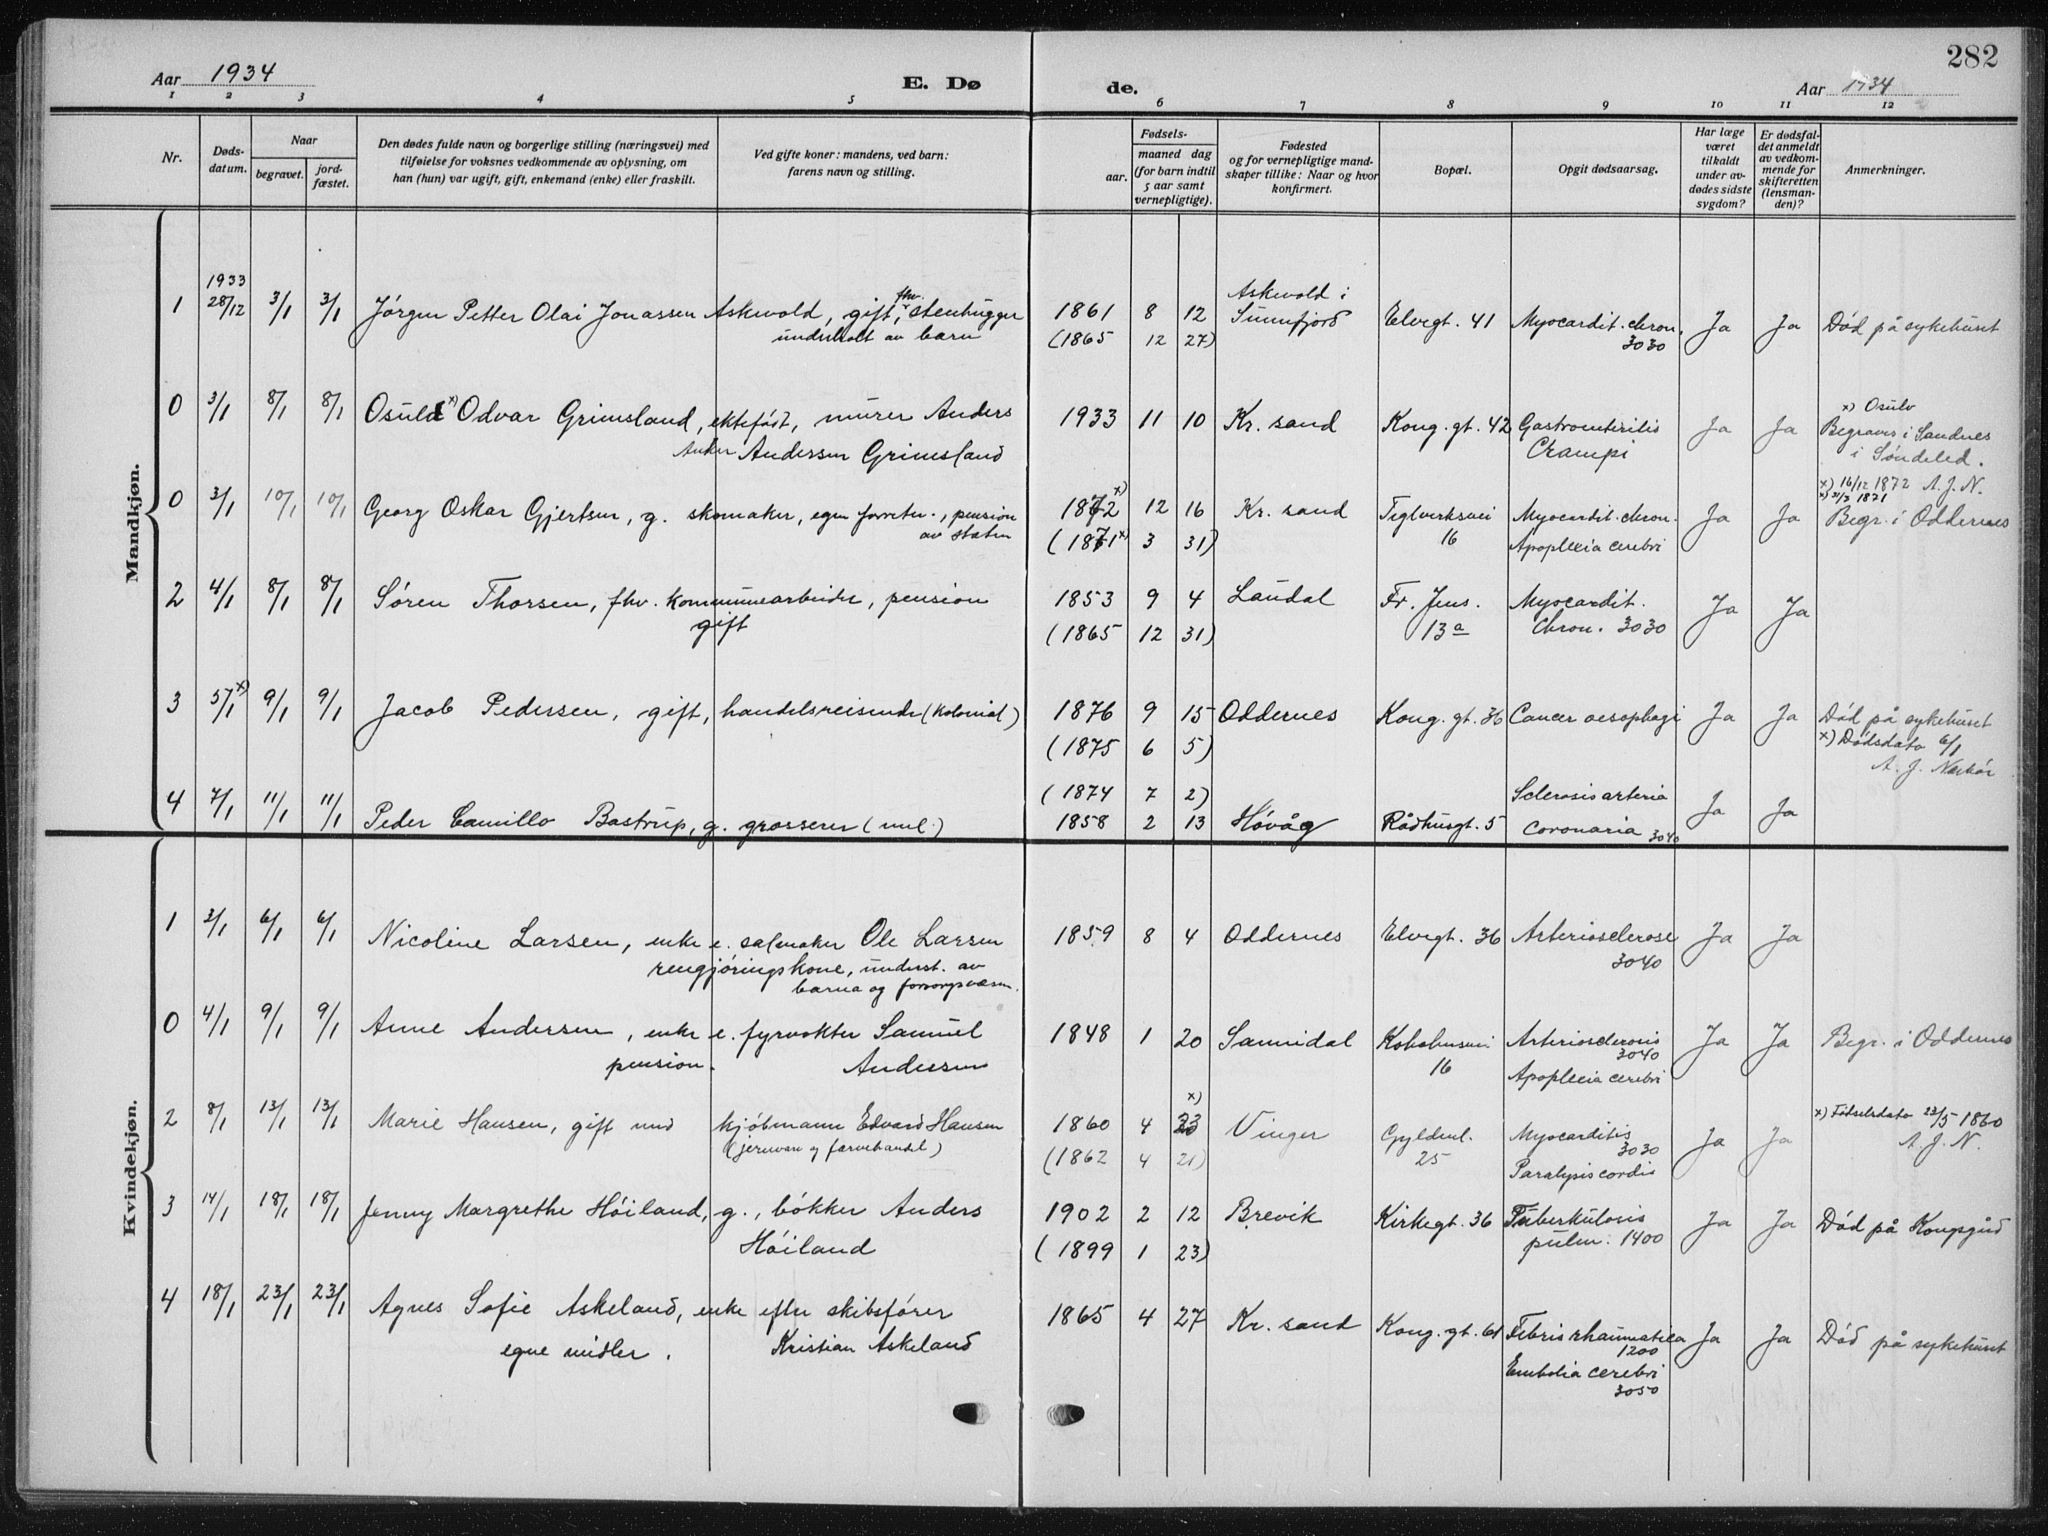 282
Aar 1934
E. Dø
de.
Aar 1934
1 2 3 4 5 6 7 8 9 10 11 12
Nr.
Døds-
datum.
Naar
begravet.
jord-
fæstet.
Den dødes fulde navn og borgerlige stilling (næringsvei) med
tilføielse for voksnes vedkommende av oplysning, om
han (hun) var ugift, gift, enkemand (enke) eller fraskilt.
Ved gifte koner: mandens, ved barn:
farens navn og stilling.
Fødsels-
aar.
maaned dag
(for barn indtil
5 aar samt
vernepligtige).
Fødested
og for vernepligtige mand-
skaper tillike: Naar og hvor
konfirmert.
Bopæl.
Opgit dødsaarsag.
Har læge
været
tilkaldt
under av-
dødes sidste
sygdom?
Er dødsfal-
det anmeldt
av vedkom-
mende for
skifteretten
(lensman-
den)?
Anmerkninger.
Mandkjøn.
1933
1 28/12 3/1 3/1 Jørgen Petter Olai Jonassen Askvold, gift, fhv. stenhugger
underholt av barn
1861 8 12
(1865 12 27)
Askvold i
Sunnfjord
Elvegt. 41
Myocardit. chron.
3030
Ja Ja Død på sykehuset
0 3/1 8/1 8/1 Osuld x) Odvar Grimsland, ektefødt, murer Anders
Anker Andersen Grimsland
1933 11 10 Kr. sand Kong. gt. 42 Gastroenteritis
Crampi
Ja Ja
x) Osulv
Begraves i Sandnes
i Søndeled.
0 3/1 10/1 10/1 Georg Oskar Gjertsen, g. skomaker, egen forretn., pension
av staten
1872 x) 12 16
(1871 x) 3 31)
Kr. sand Teglverksvei
16
Myocardit. chron.
Apoplexia cerebri
Ja Ja
x) 16/12 1872 A. J. N.
x) 31/3 1871
Begr. i Oddernes
2 4/1 8/1 8/1 Søren Thorsen, fhv. kommunearbeider, pension
gift
1853 9 4
(1865 12 31)
Laudal Fr. Jens.
13a
Myocardit.
Chron. 3030
Ja Ja
3 5/1 x) 9/1 9/1 Jacob Pedersen, gift, handelsreisende (kolonial)
1876 9 15
(1875 6 5)
Oddernes Kong. gt. 36 Cancer oesophagi Ja Ja
Død på sykehuset
x) Dødsdato 6/1
A. J. Nesbør
4 7/1 11/1 11/1 Peder Camillo Bastrup, g. grosserer (mel.)
(1874 7 2)
1858 2 13
Høvåg Rådhusgt. 5
Sclerosis arteria
coronaria 3040
Ja Ja
Kvindekjøn.
1 3/1 6/1 6/1 Nicoline Larsen, enke e. salmaker Ole Larsen
rengjøringskone, underst. av
barna og forsorgsvæsen.
1859 8 4 Oddernes Elvegt. 36 Arteriosclerose
3040
Ja Ja
0 4/1 9/1 9/1 Anne Andersen, enke e. fyrvokter Samuel
pension. Andersen
1848 1 20 Sannidal Kobolmsvei
16
Arteriosclerosis
3040
Apoplexia cerebri
Ja Ja Begr. i Oddernes
2 8/1 13/1 13/1 Marie Hansen, gift med kjøbmann Edvard Hansen
(jernvare og farvehandel)
x)
1860 4 23
(1862 4 21)
Vinger Gyldenl.
25
Myocarditis
3030
Paralysis cordis
Ja Ja
x) Fødselsdato 23/5 1860
A. J. N.
3 14/1 18/1 18/1 Jenny Margrethe Høiland, g., bøkker Anders
Høiland
1902 2 12
(1899 1 23)
Brevik Kirkegt. 36 Tuberkulosis
pulm. 1400
Ja Ja Død på Kongsgård
4 18/1 23/1 23/1 Agnes Sofie Askeland, enke efter skibsfører
egne midler. Kristian Askeland
1865 4 27 Kr. sand Kong. gt. 61 Febris rhaumatica
1200
Embolia cerebri
3050
Ja Ja Død på sykehuset